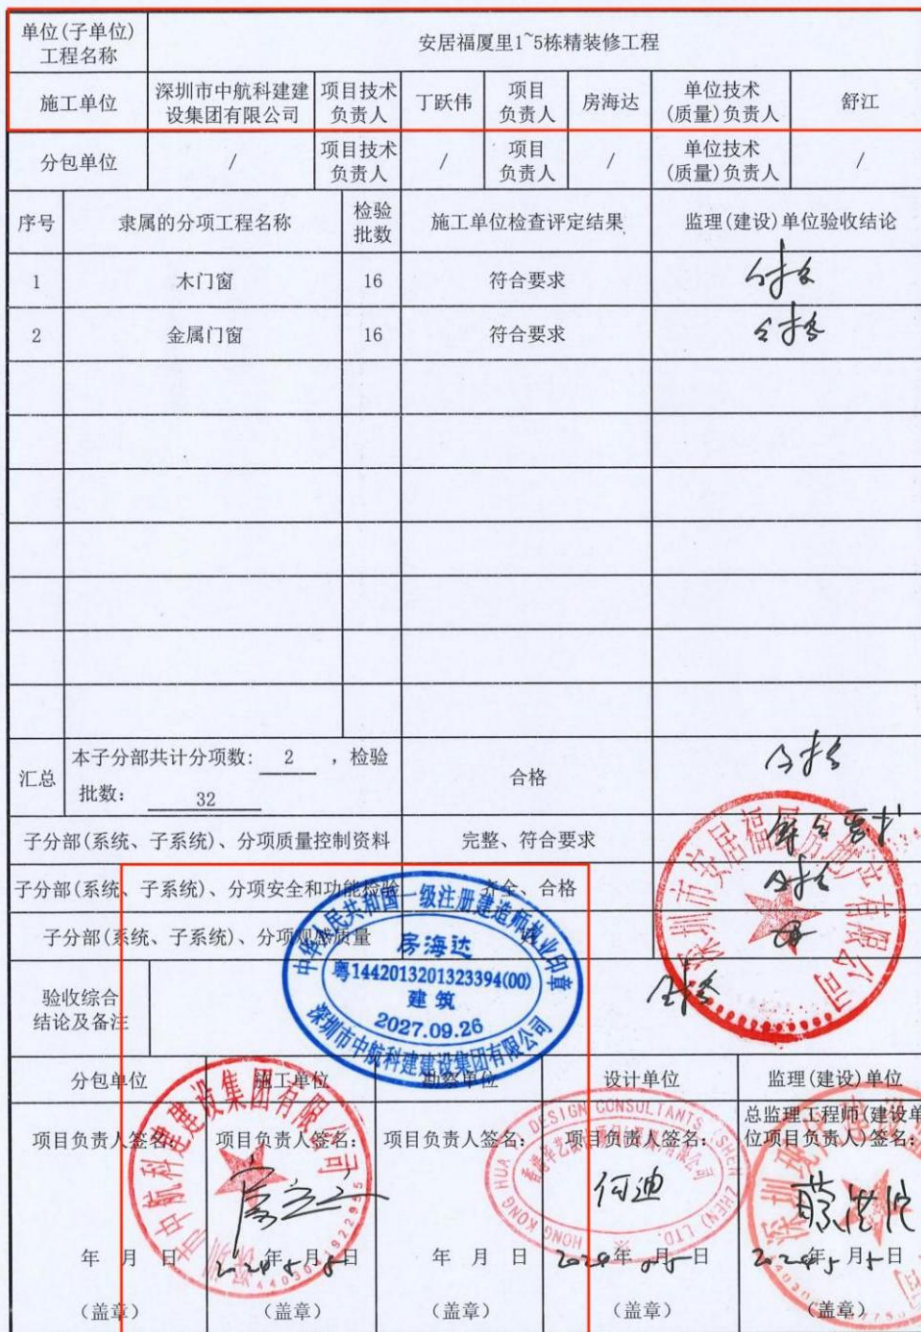 单位(子单位)
工程名称
安居福厦里1~5栋精装修工程
施工单位
深圳市中航科建建
设集团有限公司
项目技术
负责人
丁跃伟
项目
负责人
房海达
单位技术
(质量)负责人
舒江
分包单位
/
项目技术
负责人
/
项目
负责人
/
单位技术
(质量)负责人
/
序号
隶属的分项工程名称
检验
批数
施工单位检查评定结果
监理(建设)单位验收结论
1
木门窗
16
符合要求
合格
2
金属门窗
16
符合要求
合格
汇总
本子分部共计分项数: 2 ,检验
批数: 32
合格
合格
子分部(系统、子系统)、分项质量控制资料
完整、符合要求
符合要求
子分部(系统、子系统)、分项安全和功能检验
齐全、合格
合格
子分部(系统、子系统)、分项观感质量
验收综合
结论及备注
合格
中华人民共和国一级注册建造师执业印章
房海达
粤1442013201323394(00)
建筑
2027.09.26
深圳市中航科建建设集团有限公司
分包单位
施工单位
勘察单位
设计单位
监理(建设)单位
项目负责人签名:
项目负责人签名:
项目负责人签名:
项目负责人签名:
总监理工程师(建设单
位项目负责人)签名:
何迪
HONG KONG HUA DESIGN CONSULTANTS (SHEN ZHEN) LTD.
年 月 日
年 月 日
年 月 日
年 月 日
年 月 日
(盖章)
(盖章)
(盖章)
(盖章)
(盖章)